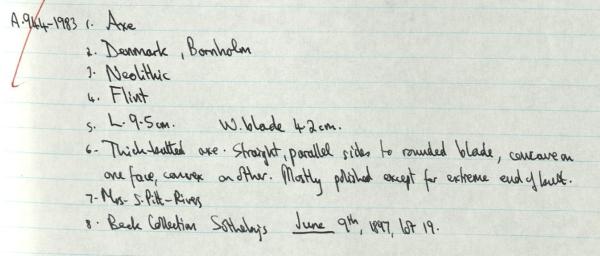 A.944-1983 1. Axe
2. Denmark, Bornholm
3. Neolithic
4. Flint
5. L. 9.5cm. W. blade 4.2cm.
6. Thick-butted axe. Straight, parallel sides to rounded blade, concave on
one face, convex on other. Mostly polished except for extreme end of butt.
7. Mrs. S. Pitt-Rivers
8. Beck Collection Sothebys June 9th, 1897, lot 19.